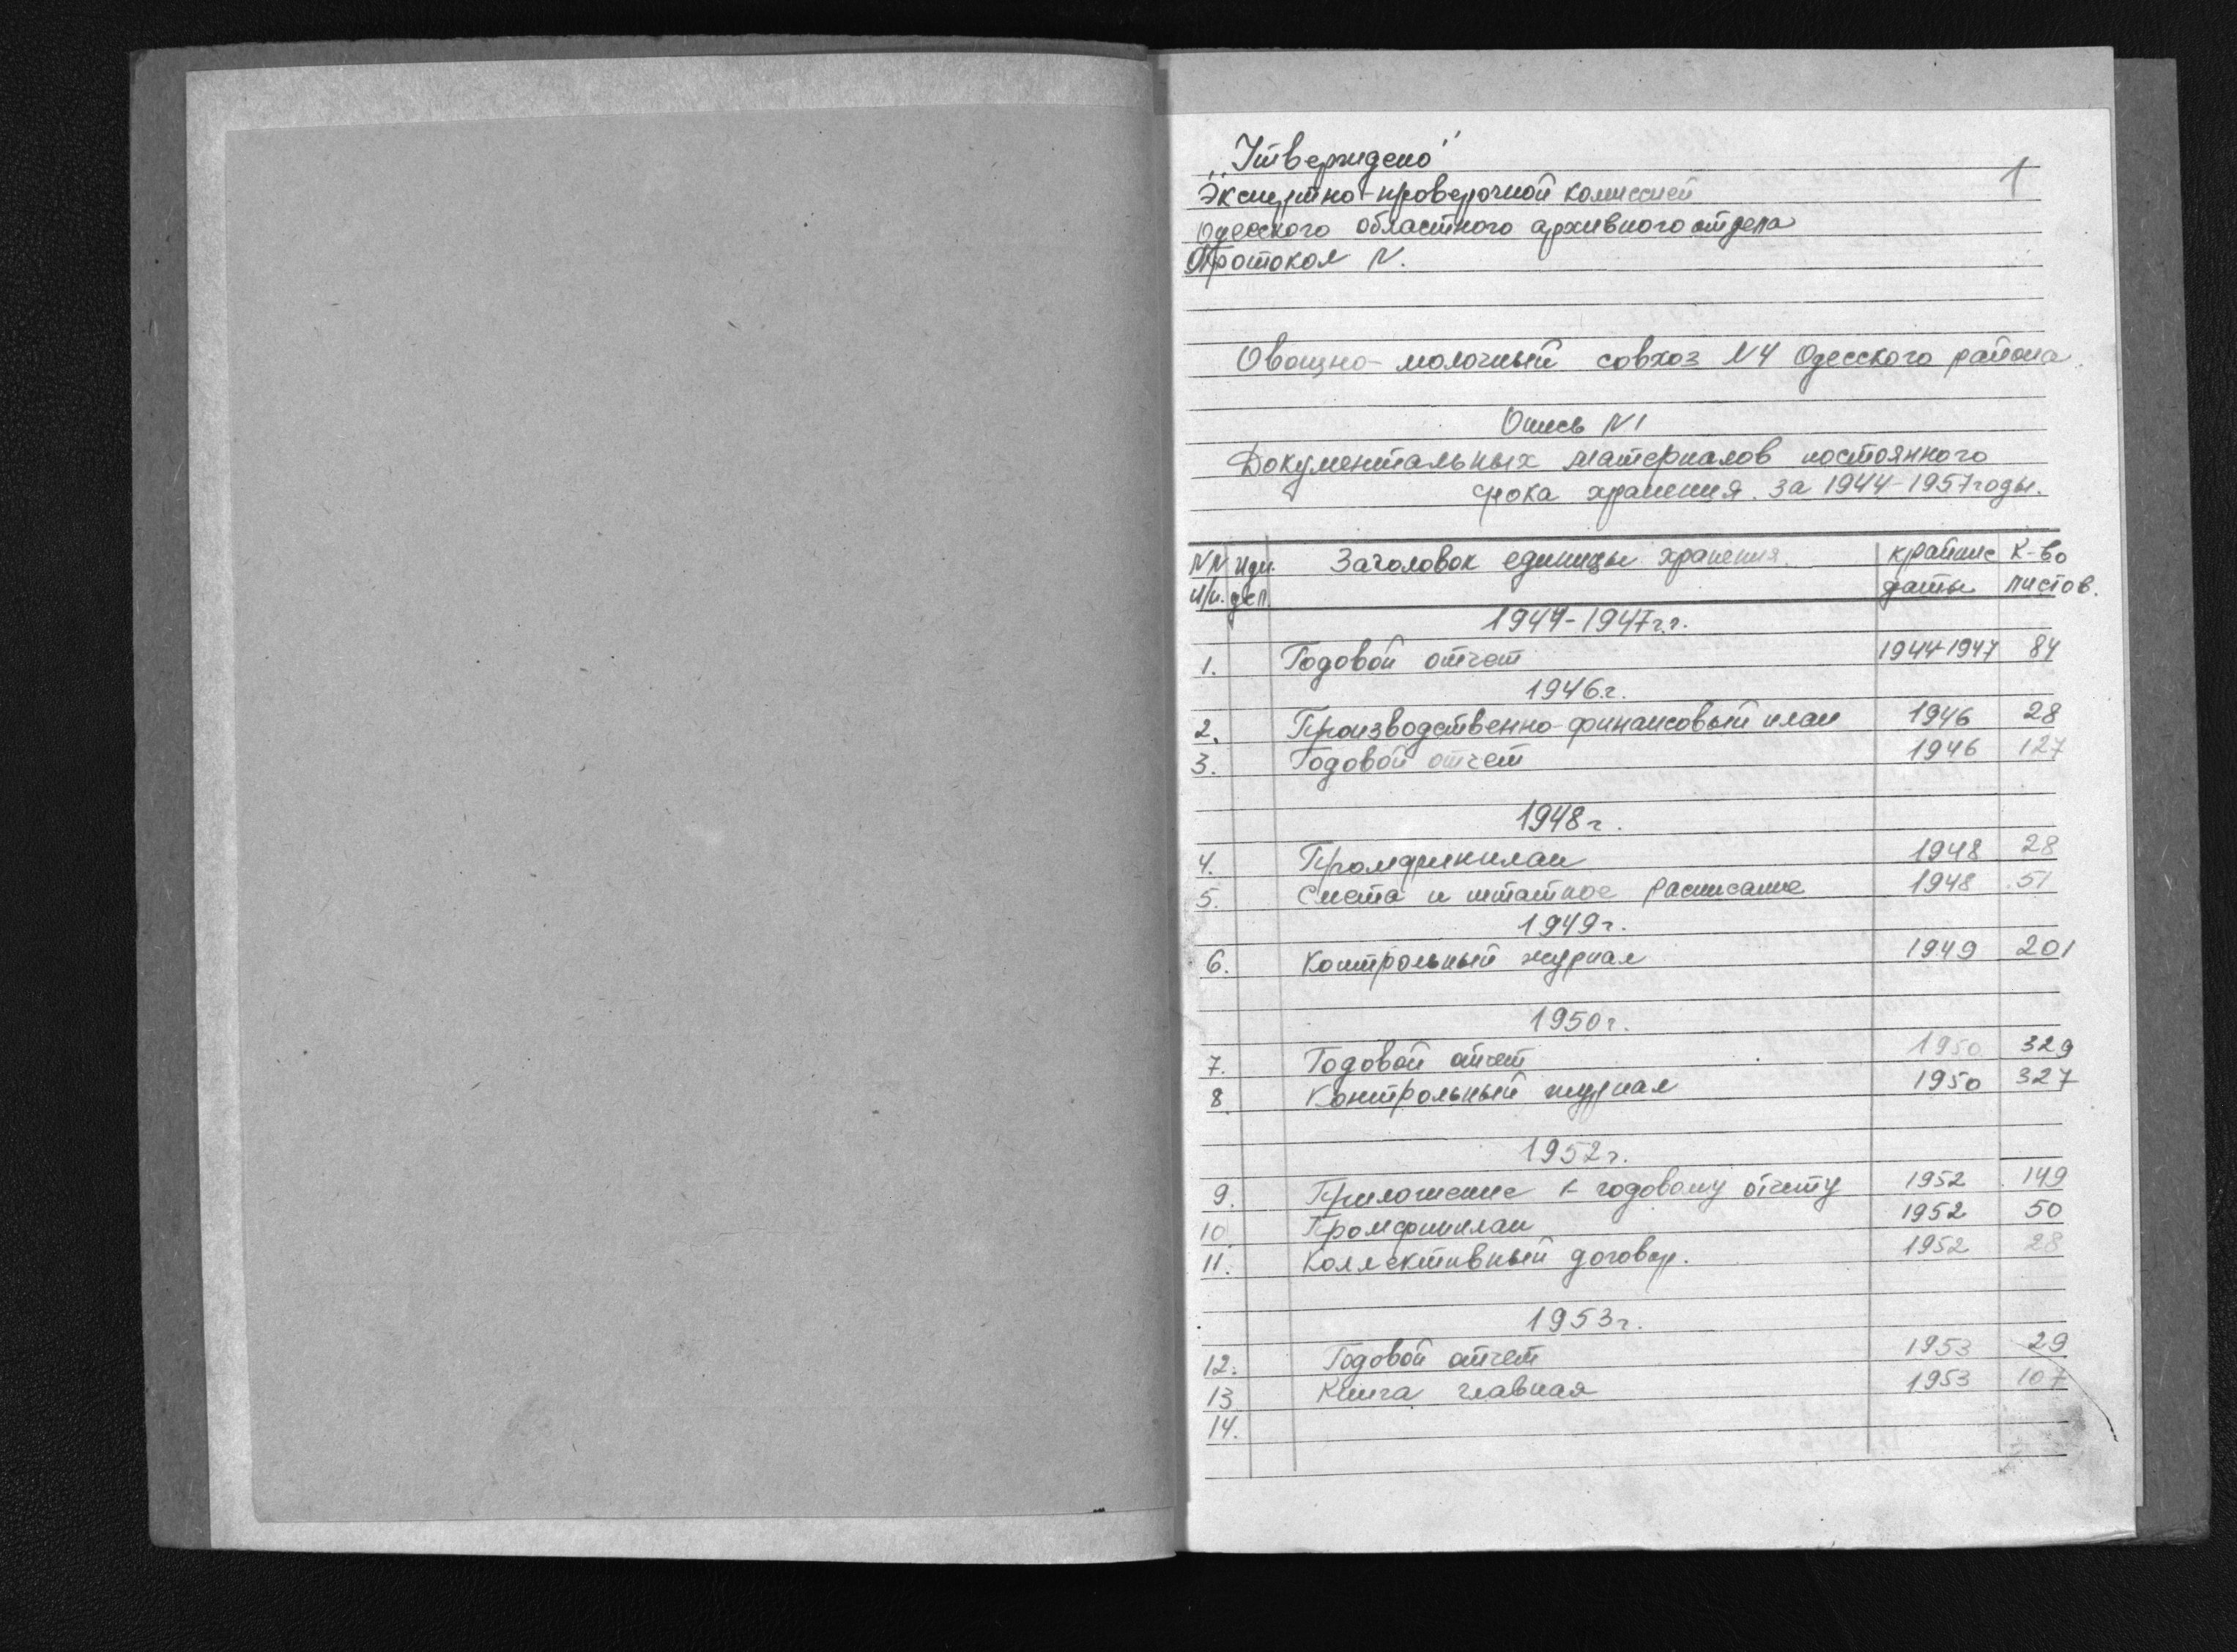 „Утверждено"
1
Экспертно-проверочной комиссией
Одесского областного архивного отдела
Протокол N.
Овощно-молочный совхоз N4 Одесского района
Опись N1
Документальных материалов постоянного
срока хранения за 1944-1957годы.
NN Инд. Заголовок единицы хранения крайние К-во
п/п. дел. даты листов.
1944-1947г.г.
1. Годовой отчет 1944-1947 84
1946г.
2. Производственно-финансовый план 1946 28
3. Годовой отчет 1946 127
1948г.
4. Промфинплан 1948 28
5. Смета и штатное расписание 1948 51
1949г.
6. Контрольный журнал 1949 201
1950г.
7. Годовой отчет 1950 329
8. Контрольный журнал 1950 327
1952г.
9. Приложение к годовому отчету 1952 149
10. Промфинплан 1952 50
11. Коллективный договор. 1952 28
1953г.
12. Годовой отчет 1953 29
13. Книга главная 1953 107
14.